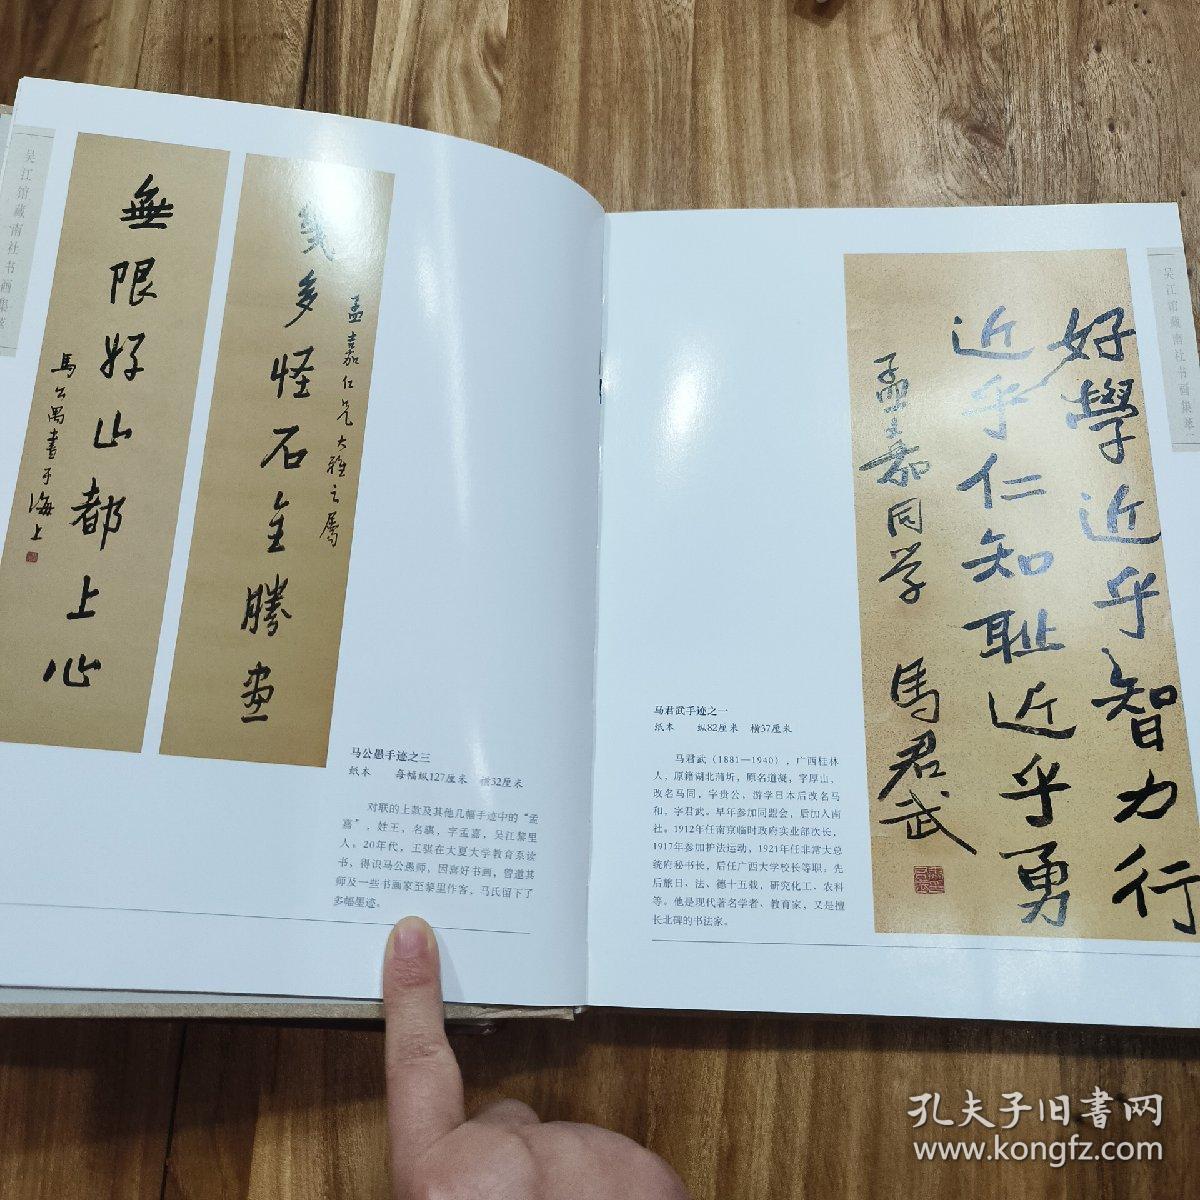 吴江馆藏南社书画集萃
幾多怪石全勝畫
孟嘉仁兄大雅之屬
無限好山都上心
馬公愚書于海上
马公愚手迹之三
纸本 每幅纵127厘米 横32厘米
对联的上款及其他几幅手迹中的“孟
嘉”，姓王，名骐，字孟嘉，吴江黎里
人。20年代，王骐在大夏大学教育系读
书，得识马公愚师，因喜好书画，曾邀其
师及一些书画家至黎里作客，马氏留下了
多幅墨迹。
吴江馆藏南社书画集萃
好學近乎智力行
近乎仁知耻近乎勇
孟嘉同学
馬君武
马君武手迹之一
纸本 纵82厘米 横37厘米
马君武（1881—1940），广西桂林
人，原籍湖北蒲圻，原名道凝，字厚山，
改名马同，字贵公，游学日本后改名马
和，字君武。早年参加同盟会，后加入南
社。1912年任南京临时政府实业部次长，
1917年参加护法运动，1921年任非常大总
统府秘书长，后任广西大学校长等职。先
后旅日、法、德十五载，研究化工、农科
等。他是现代著名学者、教育家，又是擅
长北碑的书法家。
孔夫子旧书网
www.kongfz.com